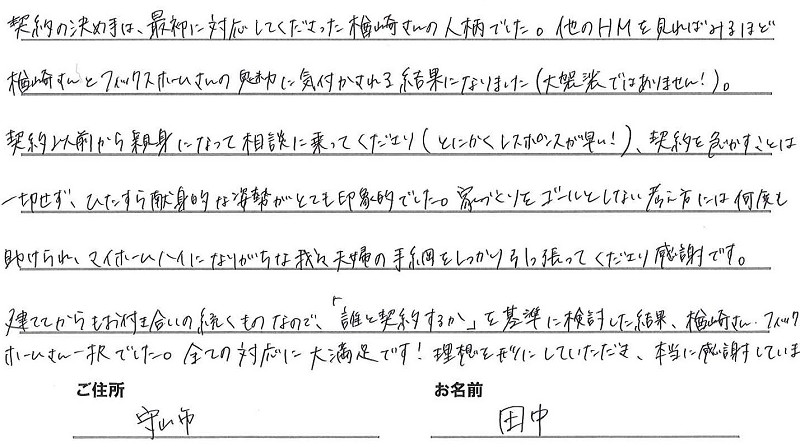 契約の決め手は、最初に対応してくださった楢崎さんの人柄でした。他のHMを見ればみるほど
楢崎さんとフィックスホームさんの魅力に気付かされる結果になりました(大袈裟ではありません!)。
契約以前から親身になって相談に乗ってくださり(とにかくレスポンスが早い!)、契約を急かすことは
一切せず、ひたすら献身的な姿勢がとても印象的でした。家づくりをゴールとしない考え方には何度も
助けられ、マイホームハイになりがちな我々夫婦の手綱をしっかり引っ張ってくださり感謝です。
建ててからもお付き合いの続くものなので、「誰と契約するか」を基準に検討した結果、楢崎さん・フィック
ホームさん一択でした。全ての対応に大満足です!理想を形にしていただき、本当に感謝していま
ご住所 お名前
守山市 田中